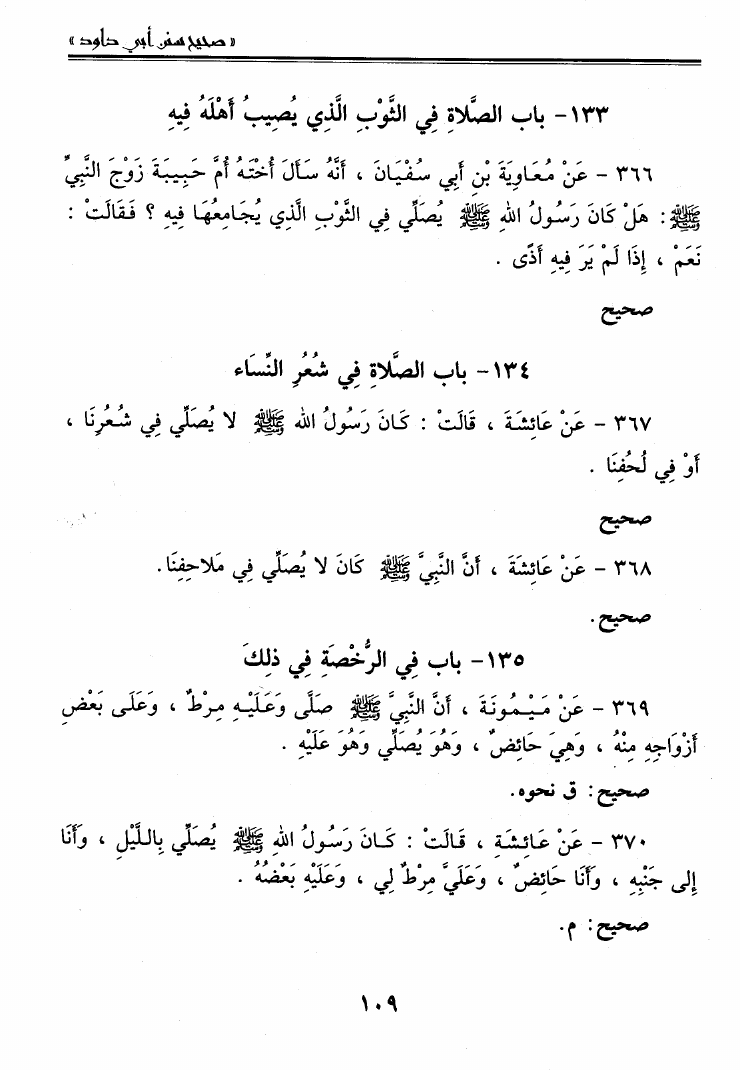 « صحيح سنن أبي داود »
١٣٣- باب الصَّلاةِ فِي الثَّوْبِ الَّذِي يُصِيبُ أَهْلَهُ فِيهِ
٣٦٦ - عَنْ مُعَاوِيَةَ بْنِ أَبِي سُفْيَانَ ، أَنَّهُ سَأَلَ أُخْتَهُ أُمَّ حَبِيبَةَ زَوْجَ النَّبِيِّ
ﷺ: هَلْ كَانَ رَسُولُ اللهِ ﷺ يُصَلِّي فِي الثَّوْبِ الَّذِي يُجَامِعُهَا فِيهِ ؟ فَقَالَتْ :
نَعَمْ ، إِذَا لَمْ يَرَ فِيهِ أَذًى .
صحيح
١٣٤- باب الصَّلاةِ فِي شُعُرِ النِّسَاء
٣٦٧ - عَنْ عَائِشَةَ ، قَالَتْ : كَانَ رَسُولُ الله ﷺ لا يُصَلِّي فِي شُعُرِنَا ،
أَوْ فِي لُحُفِنَا .
صحيح
٣٦٨ - عَنْ عَائِشَةَ ، أَنَّ النَّبِيَّ ﷺ كَانَ لا يُصَلِّي فِي مَلاحِفِنَا.
صحيح.
١٣٥- باب فِي الرُّخْصَةِ فِي ذلِكَ
٣٦٩ - عَنْ مَيْمُونَةَ ، أَنَّ النَّبِيَّ ﷺ صَلَّى وَعَلَيْهِ مِرْطٌ ، وَعَلَى بَعْضِ
أَزْوَاجِهِ مِنْهُ ، وَهِيَ حَائِضٌ ، وَهُوَ يُصَلِّي وَهُوَ عَلَيْهِ .
صحيح: ق نحوه.
٣٧٠ - عَنْ عَائِشَةِ ، قَالَتْ : كَانَ رَسُولُ اللهِ ﷺ يُصَلِّي بِاللَّيْلِ ، وَأَنَا
إِلى جَنْبِهِ ، وَأَنا حَائِضٌ ، وَعَلَيَّ مِرْطٌ لِي ، وَعَلَيْهِ بَعْضُهُ .
صحيح: م.
١٠٩